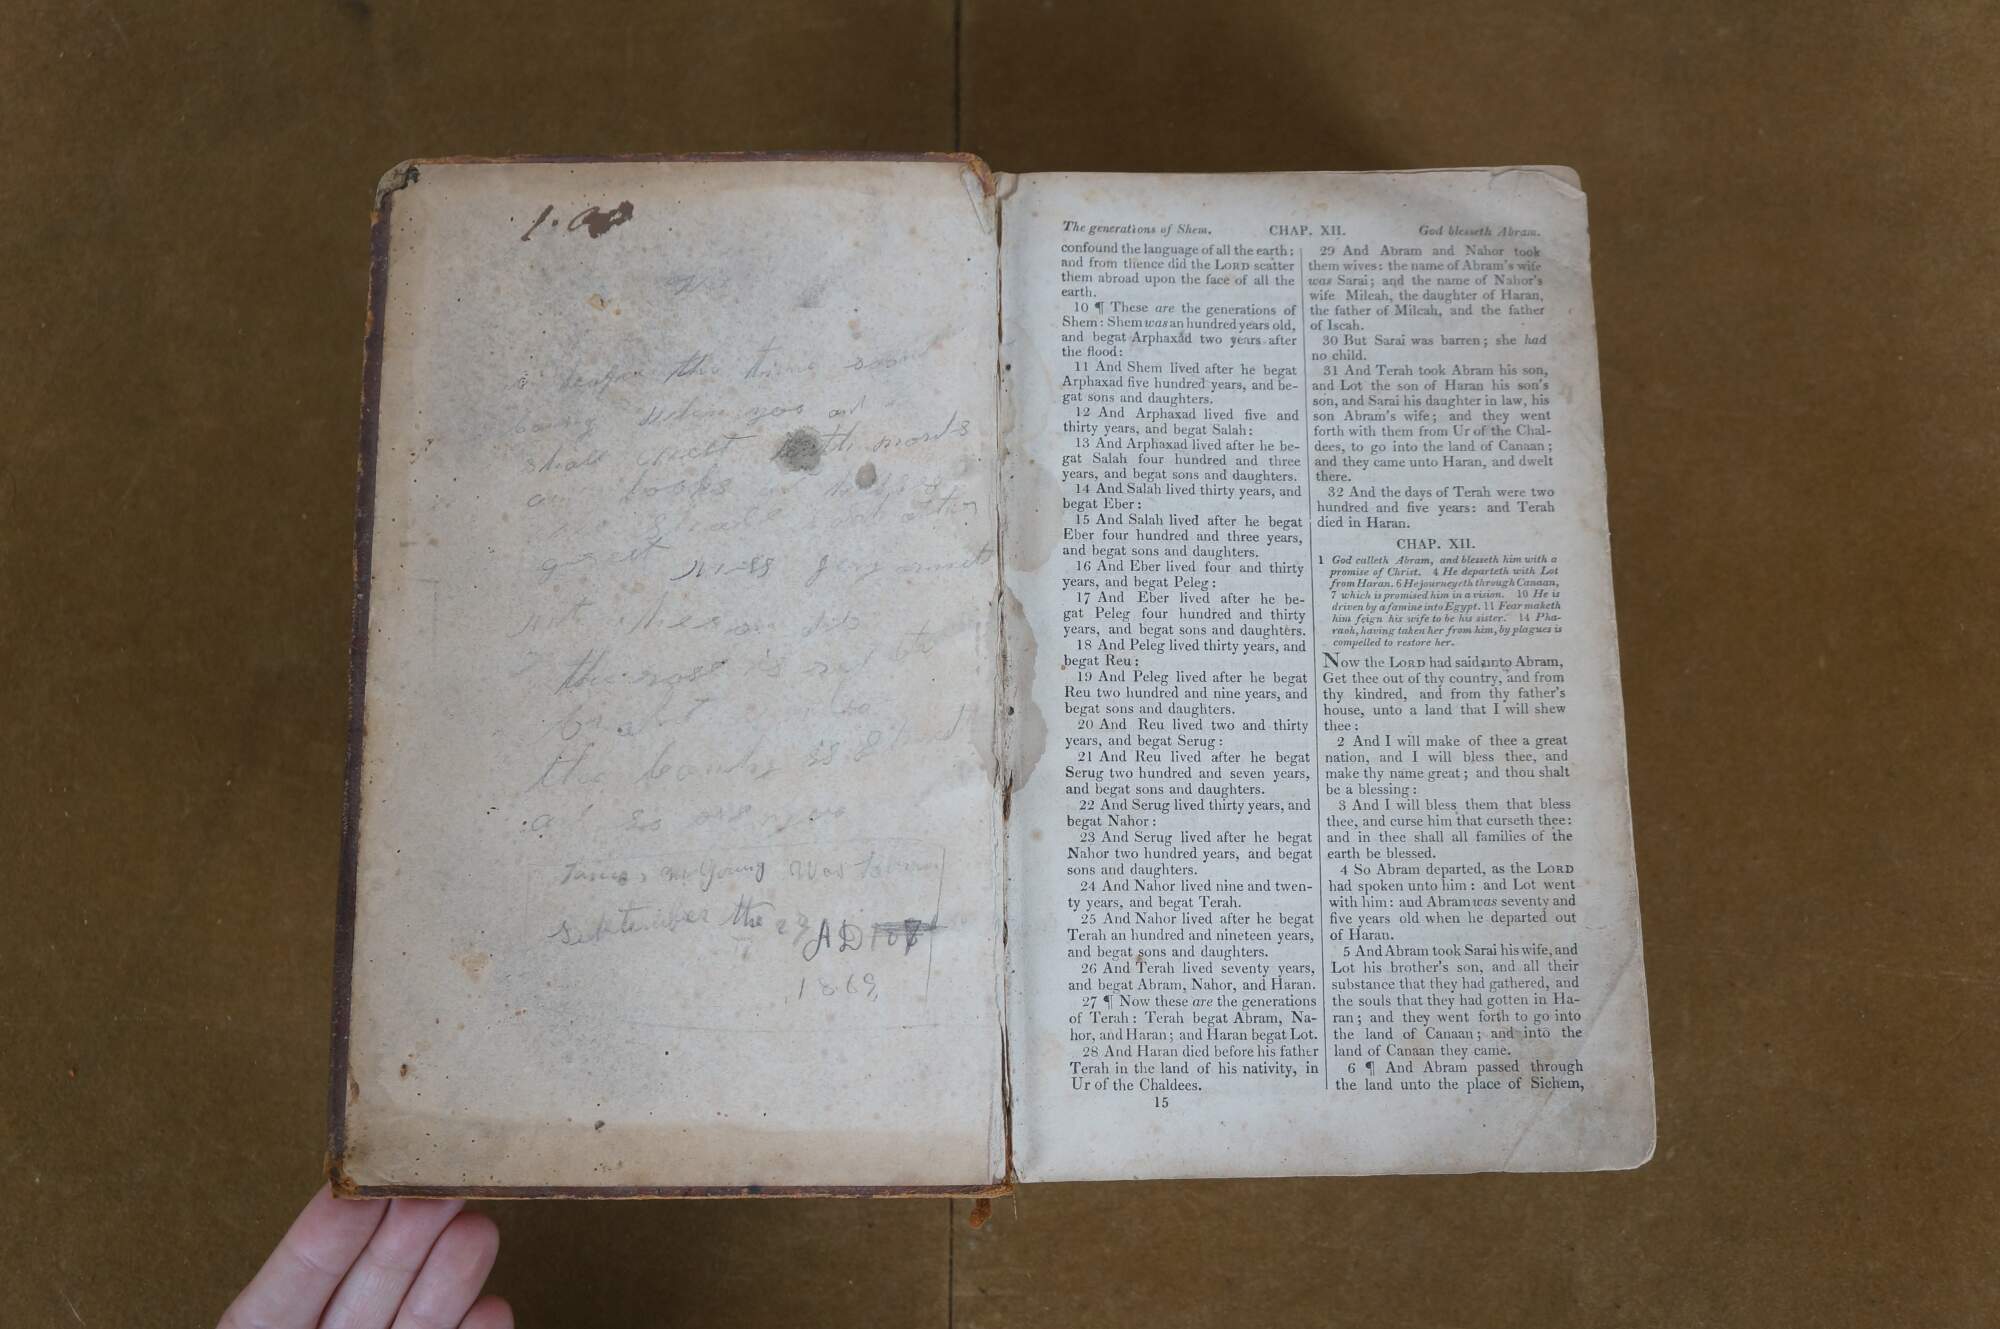 the time soon
shall
great
the rose is red
the
as
was born
September the 27 AD
1869
The generations of Shem. CHAP. XII. God blesseth Abram.
confound the language of all the earth;
and from thence did the LORD scatter
them abroad upon the face of all the
earth.
10 ¶ These are the generations of
Shem: Shem was an hundred years old,
and begat Arphaxad two years after
the flood:
11 And Shem lived after he begat
Arphaxad five hundred years, and be-
gat sons and daughters.
12 And Arphaxad lived five and
thirty years, and begat Salah:
13 And Arphaxad lived after he be-
gat Salah four hundred and three
years, and begat sons and daughters.
14 And Salah lived thirty years, and
begat Eber:
15 And Salah lived after he begat
Eber four hundred and three years,
and begat sons and daughters.
16 And Eber lived four and thirty
years, and begat Peleg:
17 And Eber lived after he be-
gat Peleg four hundred and thirty
years, and begat sons and daughters.
18 And Peleg lived thirty years, and
begat Reu:
19 And Peleg lived after he begat
Reu two hundred and nine years, and
begat sons and daughters.
20 And Reu lived two and thirty
years, and begat Serug:
21 And Reu lived after he begat
Serug two hundred and seven years,
and begat sons and daughters.
22 And Serug lived thirty years, and
begat Nahor:
23 And Serug lived after he begat
Nahor two hundred years, and begat
sons and daughters.
24 And Nahor lived nine and twen-
ty years, and begat Terah.
25 And Nahor lived after he begat
Terah an hundred and nineteen years,
and begat sons and daughters.
26 And Terah lived seventy years,
and begat Abram, Nahor, and Haran.
27 ¶ Now these are the generations
of Terah: Terah begat Abram, Na-
hor, and Haran; and Haran begat Lot.
28 And Haran died before his father
Terah in the land of his nativity, in
Ur of the Chaldees.
15
29 And Abram and Nahor took
them wives: the name of Abram's wife
was Sarai; and the name of Nahor's
wife Milcah, the daughter of Haran,
the father of Milcah, and the father
of Iscah.
30 But Sarai was barren; she had
no child.
31 And Terah took Abram his son,
and Lot the son of Haran his son's
son, and Sarai his daughter in law, his
son Abram's wife; and they went
forth with them from Ur of the Chal-
dees, to go into the land of Canaan;
and they came unto Haran, and dwelt
there.
32 And the days of Terah were two
hundred and five years: and Terah
died in Haran.
CHAP. XII.
1 God calleth Abram, and blesseth him with a
promise of Christ. 4 He departeth with Lot
from Haran. 6 He journeyeth through Canaan,
7 which is promised him in a vision. 10 He is
driven by a famine into Egypt. 11 Fear maketh
him feign his wife to be his sister. 14 Pha-
raoh, having taken her from him, by plagues is
compelled to restore her.
Now the LORD had said unto Abram,
Get thee out of thy country, and from
thy kindred, and from thy father's
house, unto a land that I will shew
thee:
2 And I will make of thee a great
nation, and I will bless thee, and
make thy name great; and thou shalt
be a blessing:
3 And I will bless them that bless
thee, and curse him that curseth thee:
and in thee shall all families of the
earth be blessed.
4 So Abram departed, as the LORD
had spoken unto him: and Lot went
with him: and Abram was seventy and
five years old when he departed out
of Haran.
5 And Abram took Sarai his wife, and
Lot his brother's son, and all their
substance that they had gathered, and
the souls that they had gotten in Ha-
ran; and they went forth to go into
the land of Canaan; and into the
land of Canaan they came.
6 ¶ And Abram passed through
the land unto the place of Sichem,